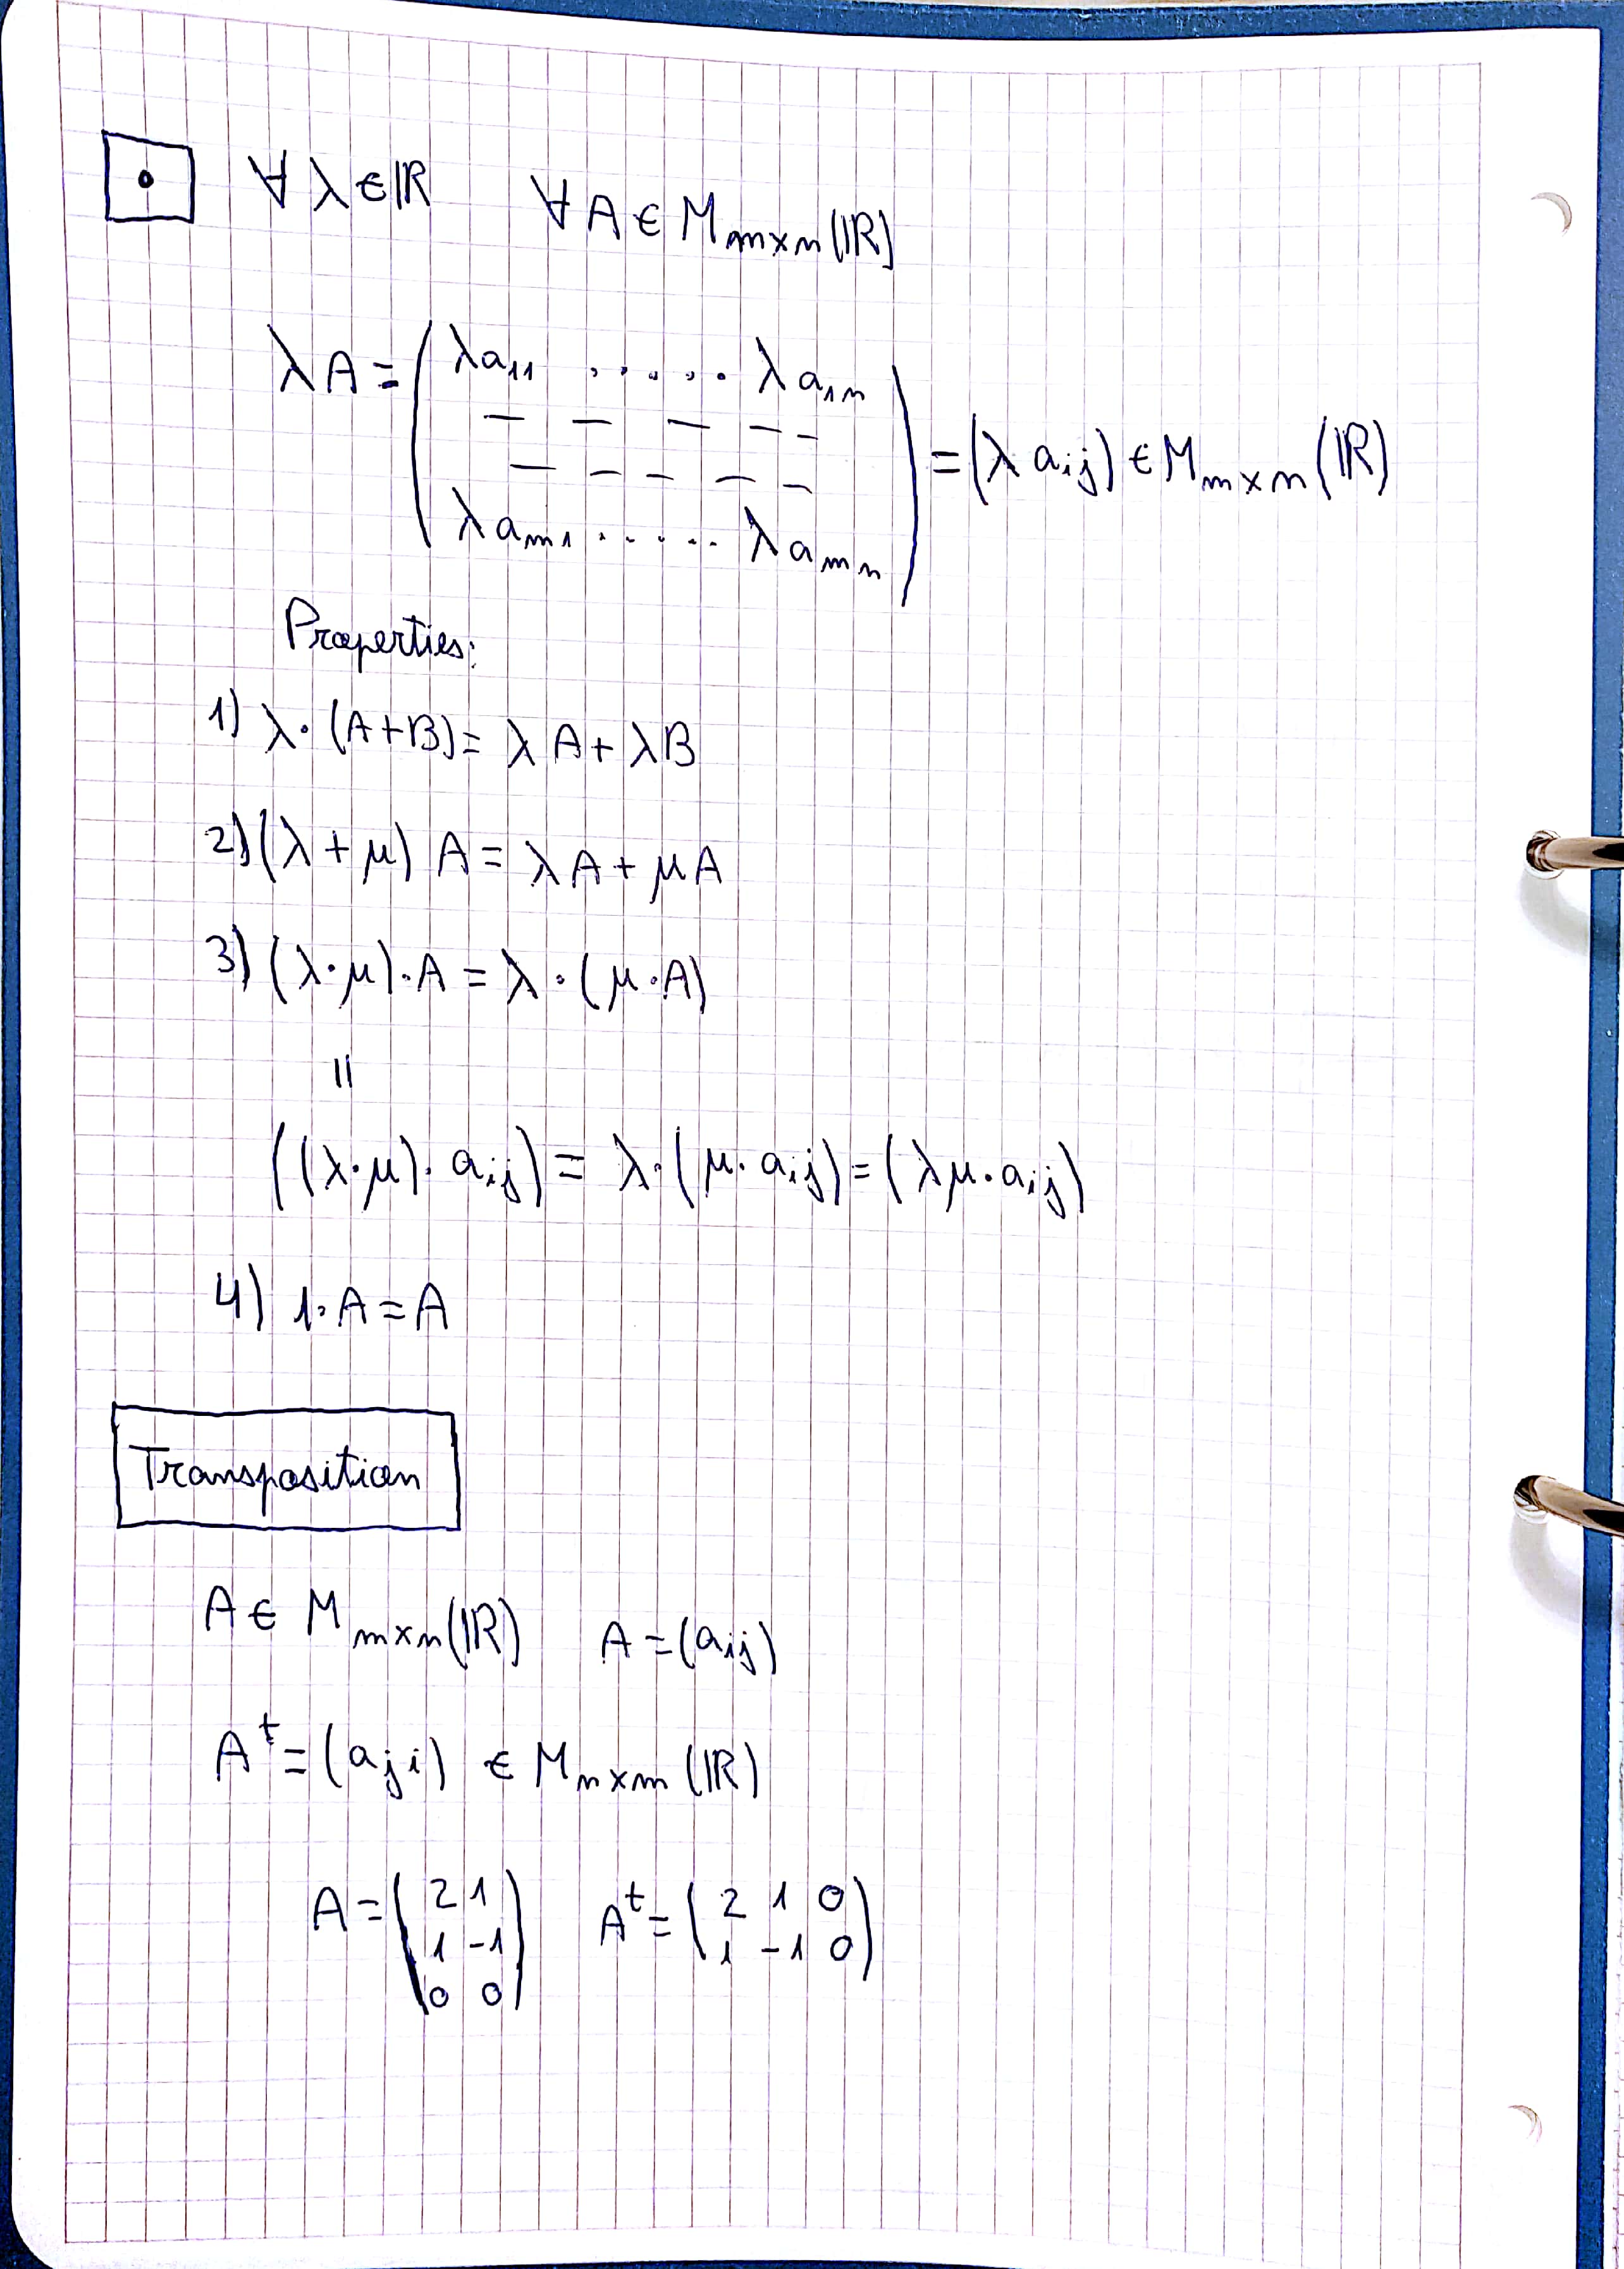 • ∀ λ ∈ ℝ ∀ A ∈ M_{m×n}(ℝ)
λA = ( λa₁₁ ..... λa₁ₙ
— — — — –
— – – — –
λa_{m1} ..... λa_{mn} ) = (λ a_{ij}) ∈ M_{m×n}(ℝ)
Properties:
1) λ·(A+B) = λA + λB
2) (λ+μ) A = λA + μA
3) (λ·μ)·A = λ·(μ·A)
||
((λ·μ)·a_{ij}) = λ·(μ·a_{ij}) = (λμ·a_{ij})
4) 1·A = A
Transposition
A ∈ M_{m×n}(ℝ) A = (a_{ij})
A^t = (a_{ji}) ∈ M_{n×m}(ℝ)
A = ( 2 1 A^t = ( 2 1 0
1 -1 1 -1 0 )
0 0 )